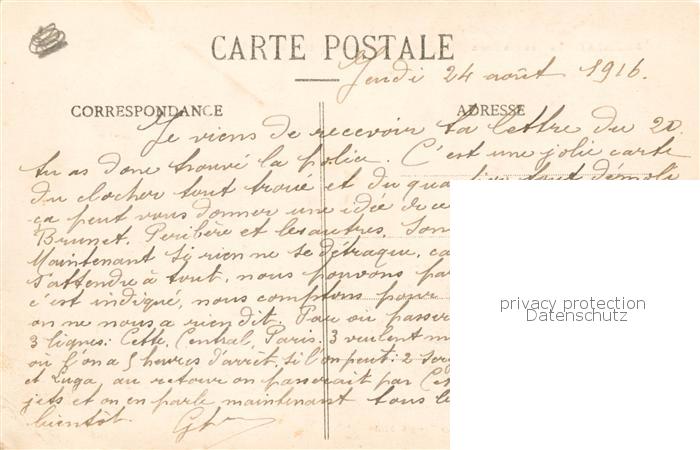 CARTE POSTALE
Jeudi 24 août 1916.
CORRESPONDANCE
ADRESSE
Je viens de recevoir ta lettre du 20.
tu as donc trouvé la police. C'est une jolie carte
du clocher tout troué et du tout démoli
ça peut vous donner une idée de ce
Brunet, Peribère et les autres. Son
Maintenant si rien ne se détraque, ca
s'attendre à tout, nous pouvons par
c'est indiqué, nous comptons pour
on ne nous a rien dit. Par où passer
3 lignes: Cette, Central, Paris. 3 veulent m
où l'on a 5 heures d'arrêt, si l'on peut: 2 Serg
et Luga, au retour on passerait par Cet
jets et on en parle maintenant tous le
bientôt.
privacy protection
Datenschutz